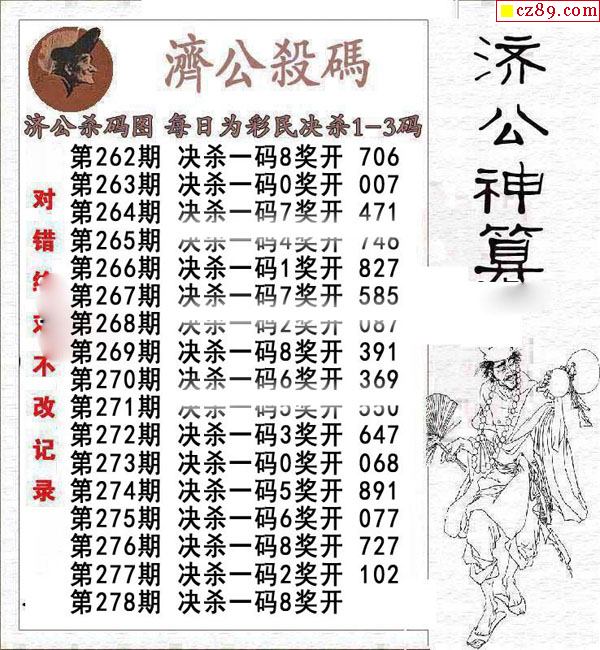 cz89.com
濟公殺碼
济公杀码图 每日为彩民决杀1-3码
第262期 决杀一码8奖开 706
第263期 决杀一码0奖开 007
第264期 决杀一码7奖开 471
第265期 决杀一码4奖开 746
第266期 决杀一码1奖开 827
第267期 决杀一码7奖开 585
第268期 决杀一码2奖开 087
第269期 决杀一码8奖开 391
第270期 决杀一码6奖开 369
第271期 决杀一码5奖开 550
第272期 决杀一码3奖开 647
第273期 决杀一码0奖开 068
第274期 决杀一码5奖开 891
第275期 决杀一码6奖开 077
第276期 决杀一码8奖开 727
第277期 决杀一码2奖开 102
第278期 决杀一码8奖开
对错 不改记录
济公神算